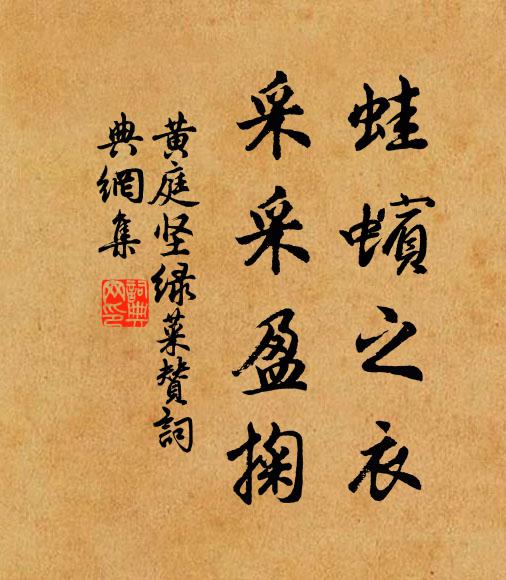 蛙蠙之衣
采采盈掬
黄庭坚绿菜赞词
典網集
詞典
网印